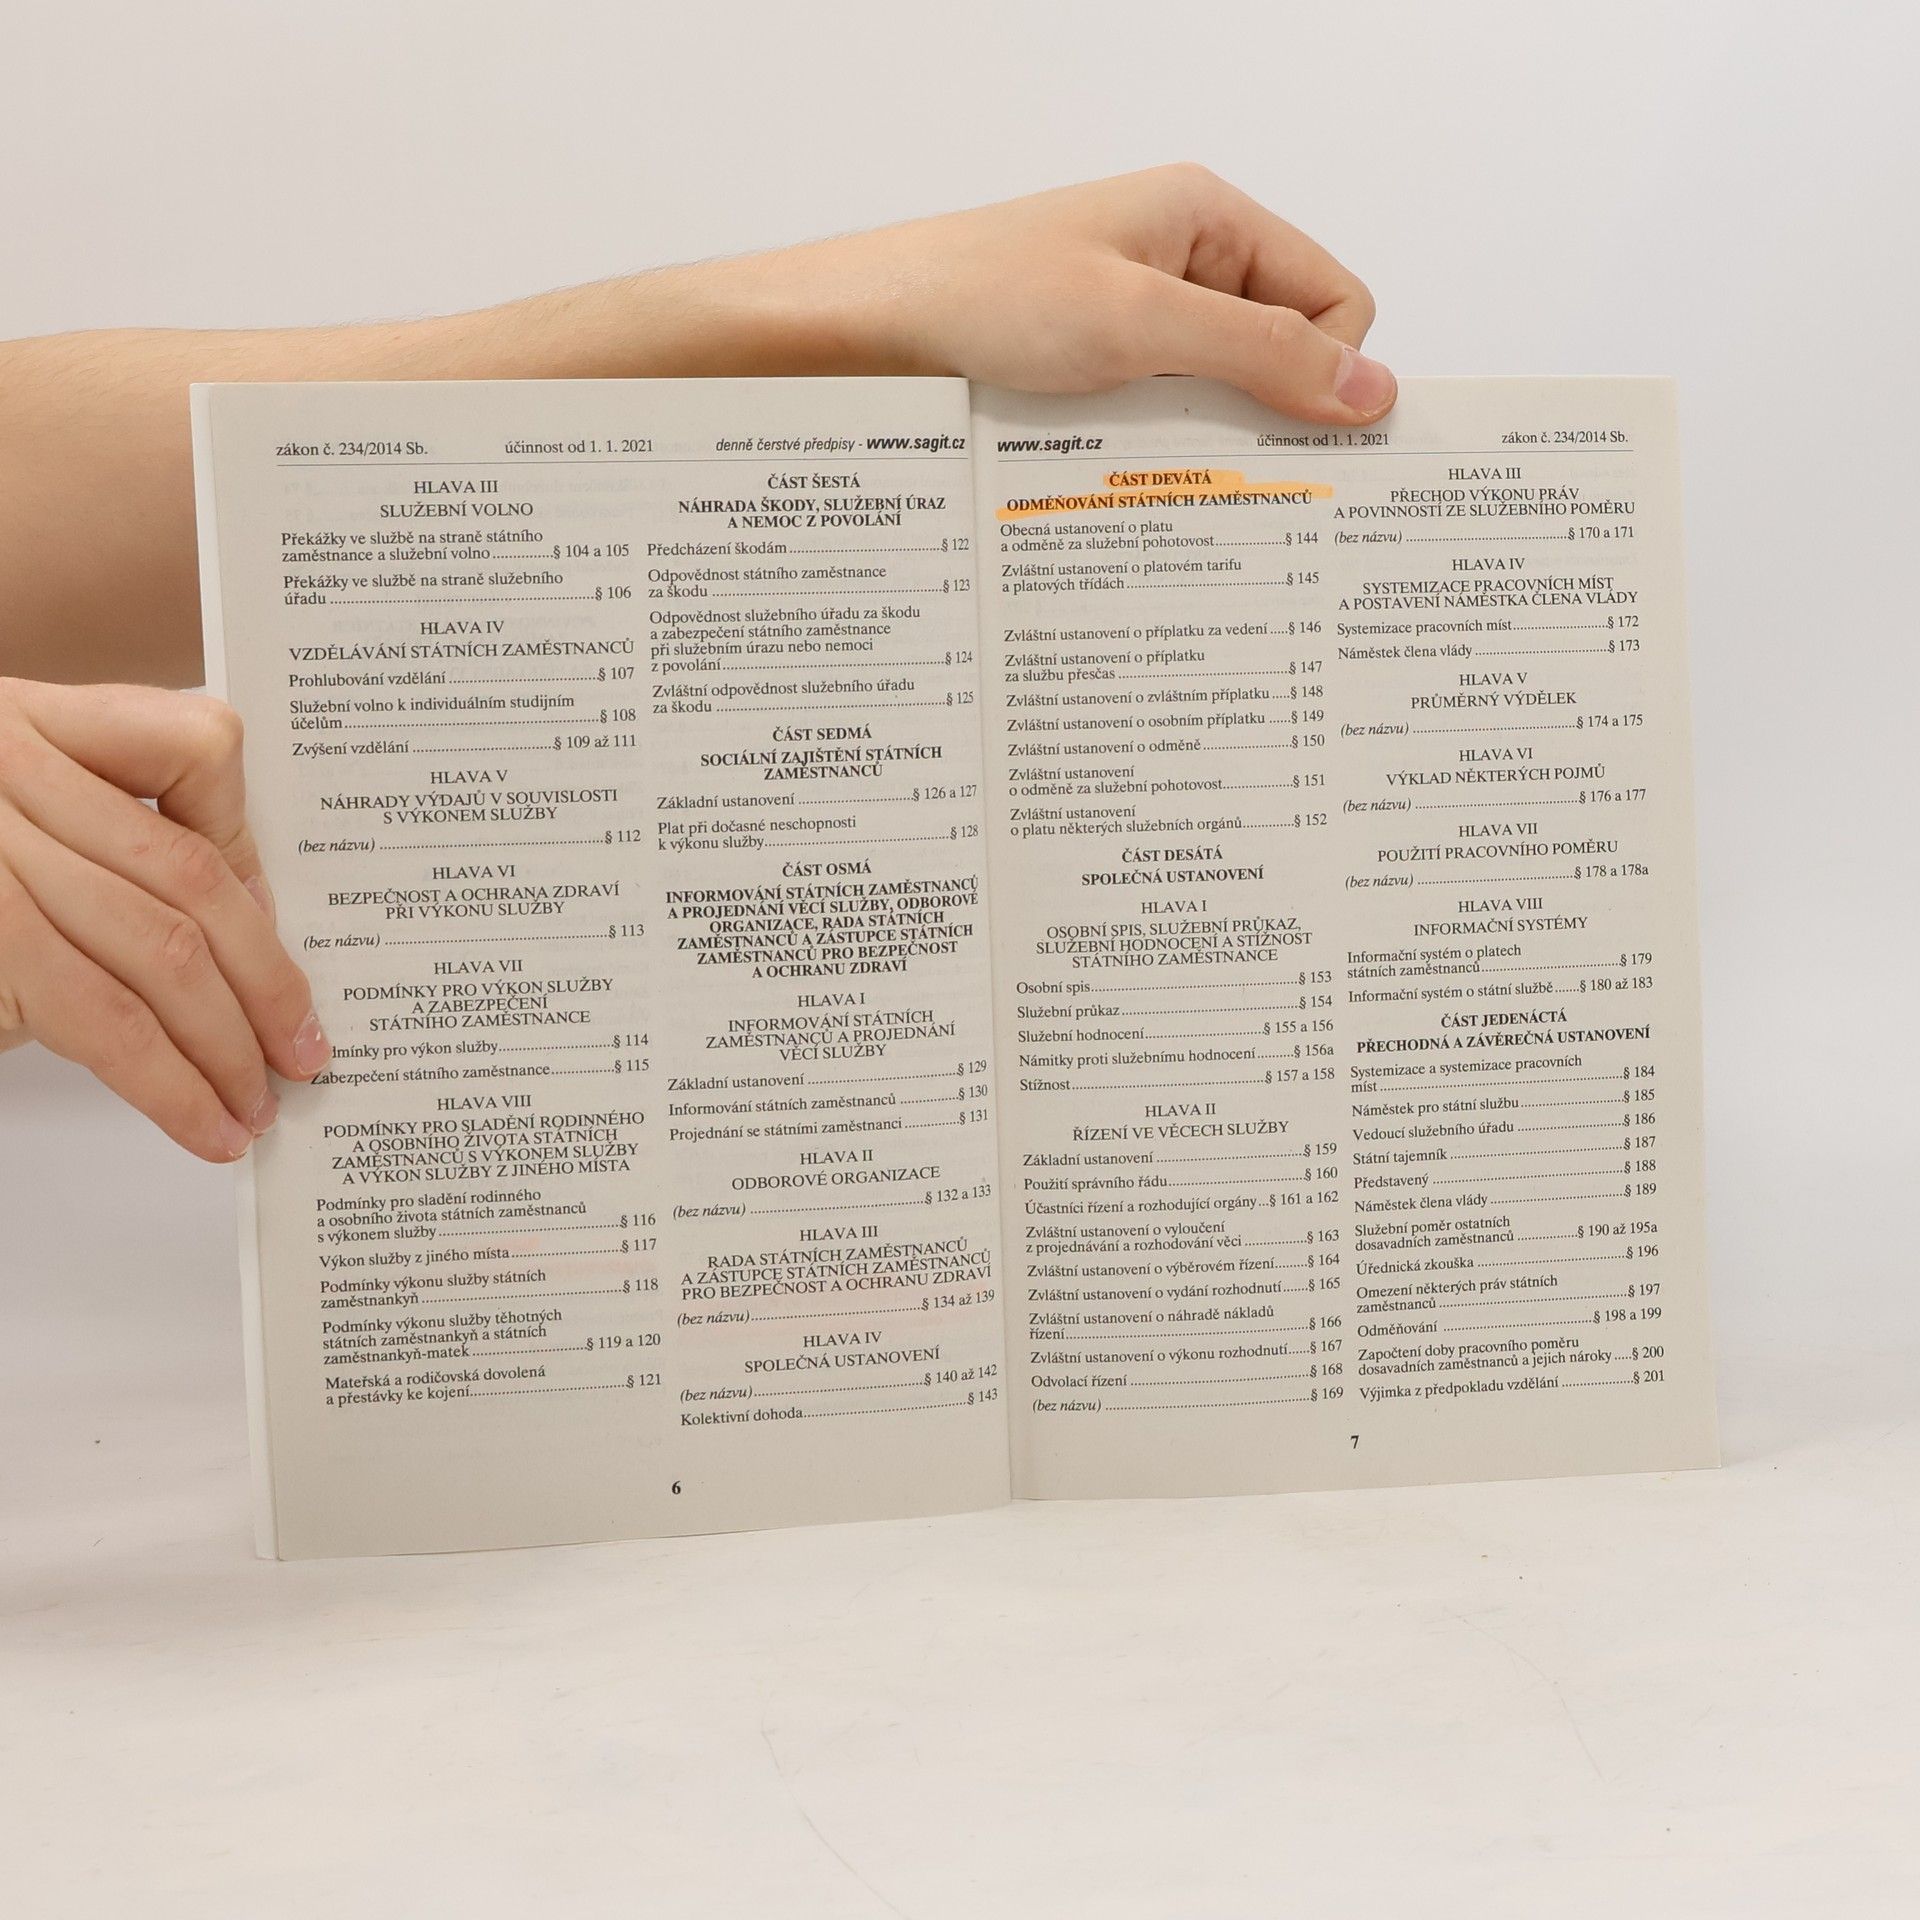 zákon č. 234/2014 Sb. účinnost od 1. 1. 2021 denně čerstvé předpisy - www.sagit.cz
HLAVA III
SLUŽEBNÍ VOLNO
Překážky ve službě na straně státního
zaměstnance a služební volno.............§ 104 a 105
Překážky ve službě na straně služebního
úřadu ........................................................§ 106
HLAVA IV
VZDĚLÁVÁNÍ STÁTNÍCH ZAMĚSTNANCŮ
Prohlubování vzdělání ................................§ 107
Služební volno k individuálním studijním
účelům.......................................................§ 108
Zvýšení vzdělání ..............................§ 109 až 111
HLAVA V
NÁHRADY VÝDAJŮ V SOUVISLOSTI
S VÝKONEM SLUŽBY
(bez názvu) ................................................§ 112
HLAVA VI
BEZPEČNOST A OCHRANA ZDRAVÍ
PŘI VÝKONU SLUŽBY
(bez názvu) ................................................§ 113
HLAVA VII
PODMÍNKY PRO VÝKON SLUŽBY
A ZABEZPEČENÍ
STÁTNÍHO ZAMĚSTNANCE
dmínky pro výkon služby.........................§ 114
Zabezpečení státního zaměstnance..............§ 115
HLAVA VIII
PODMÍNKY PRO SLADĚNÍ RODINNÉHO
A OSOBNÍHO ŽIVOTA STÁTNÍCH
ZAMĚSTNANCŮ S VÝKONEM SLUŽBY
A VÝKON SLUŽBY Z JINÉHO MÍSTA
Podmínky pro sladění rodinného
a osobního života státních zaměstnanců
s výkonem služby .......................................§ 116
Výkon služby z jiného místa........................§ 117
Podmínky výkonu služby státních
zaměstnankyň .............................................§ 118
Podmínky výkonu služby těhotných
státních zaměstnankyň a státních
zaměstnankyň-matek.........................§ 119 a 120
Mateřská a rodičovská dovolená
a přestávky ke kojení...................................§ 121
ČÁST ŠESTÁ
NÁHRADA ŠKODY, SLUŽEBNÍ ÚRAZ
A NEMOC Z POVOLÁNÍ
Předcházení škodám...................................§ 122
Odpovědnost státního zaměstnance
za škodu ....................................................§ 123
Odpovědnost služebního úřadu za škodu
a zabezpečení státního zaměstnance
při služebním úrazu nebo nemoci
z povolání..................................................§ 124
Zvláštní odpovědnost služebního úřadu
za škodu ....................................................§ 125
ČÁST SEDMÁ
SOCIÁLNÍ ZAJIŠTĚNÍ STÁTNÍCH
ZAMĚSTNANCŮ
Základní ustanovení .........................§ 126 a 127
Plat při dočasné neschopnosti
k výkonu služby.........................................§ 128
ČÁST OSMÁ
INFORMOVÁNÍ STÁTNÍCH ZAMĚSTNANCŮ
A PROJEDNÁNÍ VĚCÍ SLUŽBY, ODBOROVÉ
ORGANIZACE, RADA STÁTNÍCH
ZAMĚSTNANCŮ A ZÁSTUPCE STÁTNÍCH
ZAMĚSTNANCŮ PRO BEZPEČNOST
A OCHRANU ZDRAVÍ
HLAVA I
INFORMOVÁNÍ STÁTNÍCH
ZAMĚSTNANCŮ A PROJEDNÁNÍ
VĚCÍ SLUŽBY
Základní ustanovení ..................................§ 129
Informování státních zaměstnanců .............§ 130
Projednání se státními zaměstnanci ............§ 131
HLAVA II
ODBOROVÉ ORGANIZACE
(bez názvu) ......................................§ 132 a 133
HLAVA III
RADA STÁTNÍCH ZAMĚSTNANCŮ
A ZÁSTUPCE STÁTNÍCH ZAMĚSTNANCŮ
PRO BEZPEČNOST A OCHRANU ZDRAVÍ
(bez názvu)......................................§ 134 až 139
HLAVA IV
SPOLEČNÁ USTANOVENÍ
(bez názvu)......................................§ 140 až 142
Kolektivní dohoda.....................................§ 143
6
www.sagit.cz účinnost od 1. 1. 2021 zákon č. 234/2014 Sb.
ČÁST DEVÁTÁ
ODMĚŇOVÁNÍ STÁTNÍCH ZAMĚSTNANCŮ
Obecná ustanovení o platu
a odměně za služební pohotovost.................§ 144
Zvláštní ustanovení o platovém tarifu
a platových třídách ......................................§ 145
Zvláštní ustanovení o příplatku za vedení ....§ 146
Zvláštní ustanovení o příplatku
za službu přesčas .........................................§ 147
Zvláštní ustanovení o zvláštním příplatku ....§ 148
Zvláštní ustanovení o osobním příplatku .....§ 149
Zvláštní ustanovení o odměně .....................§ 150
Zvláštní ustanovení
o odměně za služební pohotovost.................§ 151
Zvláštní ustanovení
o platu některých služebních orgánů.............§ 152
ČÁST DESÁTÁ
SPOLEČNÁ USTANOVENÍ
HLAVA I
OSOBNÍ SPIS, SLUŽEBNÍ PRŮKAZ,
SLUŽEBNÍ HODNOCENÍ A STÍŽNOST
STÁTNÍHO ZAMĚSTNANCE
Osobní spis..................................................§ 153
Služební průkaz...........................................§ 154
Služební hodnocení............................§ 155 a 156
Námitky proti služebnímu hodnocení.........§ 156a
Stížnost..............................................§ 157 a 158
HLAVA II
ŘÍZENÍ VE VĚCECH SLUŽBY
Základní ustanovení ....................................§ 159
Použití správního řádu.................................§ 160
Účastníci řízení a rozhodující orgány...§ 161 a 162
Zvláštní ustanovení o vyloučení
z projednávání a rozhodování věci ..............§ 163
Zvláštní ustanovení o výběrovém řízení.......§ 164
Zvláštní ustanovení o vydání rozhodnutí......§ 165
Zvláštní ustanovení o náhradě nákladů
řízení...........................................................§ 166
Zvláštní ustanovení o výkonu rozhodnutí.....§ 167
Odvolací řízení ............................................§ 168
(bez názvu) .................................................§ 169
HLAVA III
PŘECHOD VÝKONU PRÁV
A POVINNOSTÍ ZE SLUŽEBNÍHO POMĚRU
(bez názvu) ........................................§ 170 a 171
HLAVA IV
SYSTEMIZACE PRACOVNÍCH MÍST
A POSTAVENÍ NÁMĚSTKA ČLENA VLÁDY
Systemizace pracovních míst.......................§ 172
Náměstek člena vlády .................................§ 173
HLAVA V
PRŮMĚRNÝ VÝDĚLEK
(bez názvu) ........................................§ 174 a 175
HLAVA VI
VÝKLAD NĚKTERÝCH POJMŮ
(bez názvu) ........................................§ 176 a 177
HLAVA VII
POUŽITÍ PRACOVNÍHO POMĚRU
(bez názvu) .......................................§ 178 a 178a
HLAVA VIII
INFORMAČNÍ SYSTÉMY
Informační systém o platech
státních zaměstnanců...................................§ 179
Informační systém o státní službě......§ 180 až 183
ČÁST JEDENÁCTÁ
PŘECHODNÁ A ZÁVĚREČNÁ USTANOVENÍ
Systemizace a systemizace pracovních
míst ............................................................§ 184
Náměstek pro státní službu..........................§ 185
Vedoucí služebního úřadu ...........................§ 186
Státní tajemník ............................................§ 187
Představený ................................................§ 188
Náměstek člena vlády .................................§ 189
Služební poměr ostatních
dosavadních zaměstnanců ...............§ 190 až 195a
Úřednická zkouška ......................................§ 196
Omezení některých práv státních
zaměstnanců ...............................................§ 197
Odměňování ......................................§ 198 a 199
Započtení doby pracovního poměru
dosavadních zaměstnanců a jejich nároky ....§ 200
Výjimka z předpokladu vzdělání .................§ 201
7